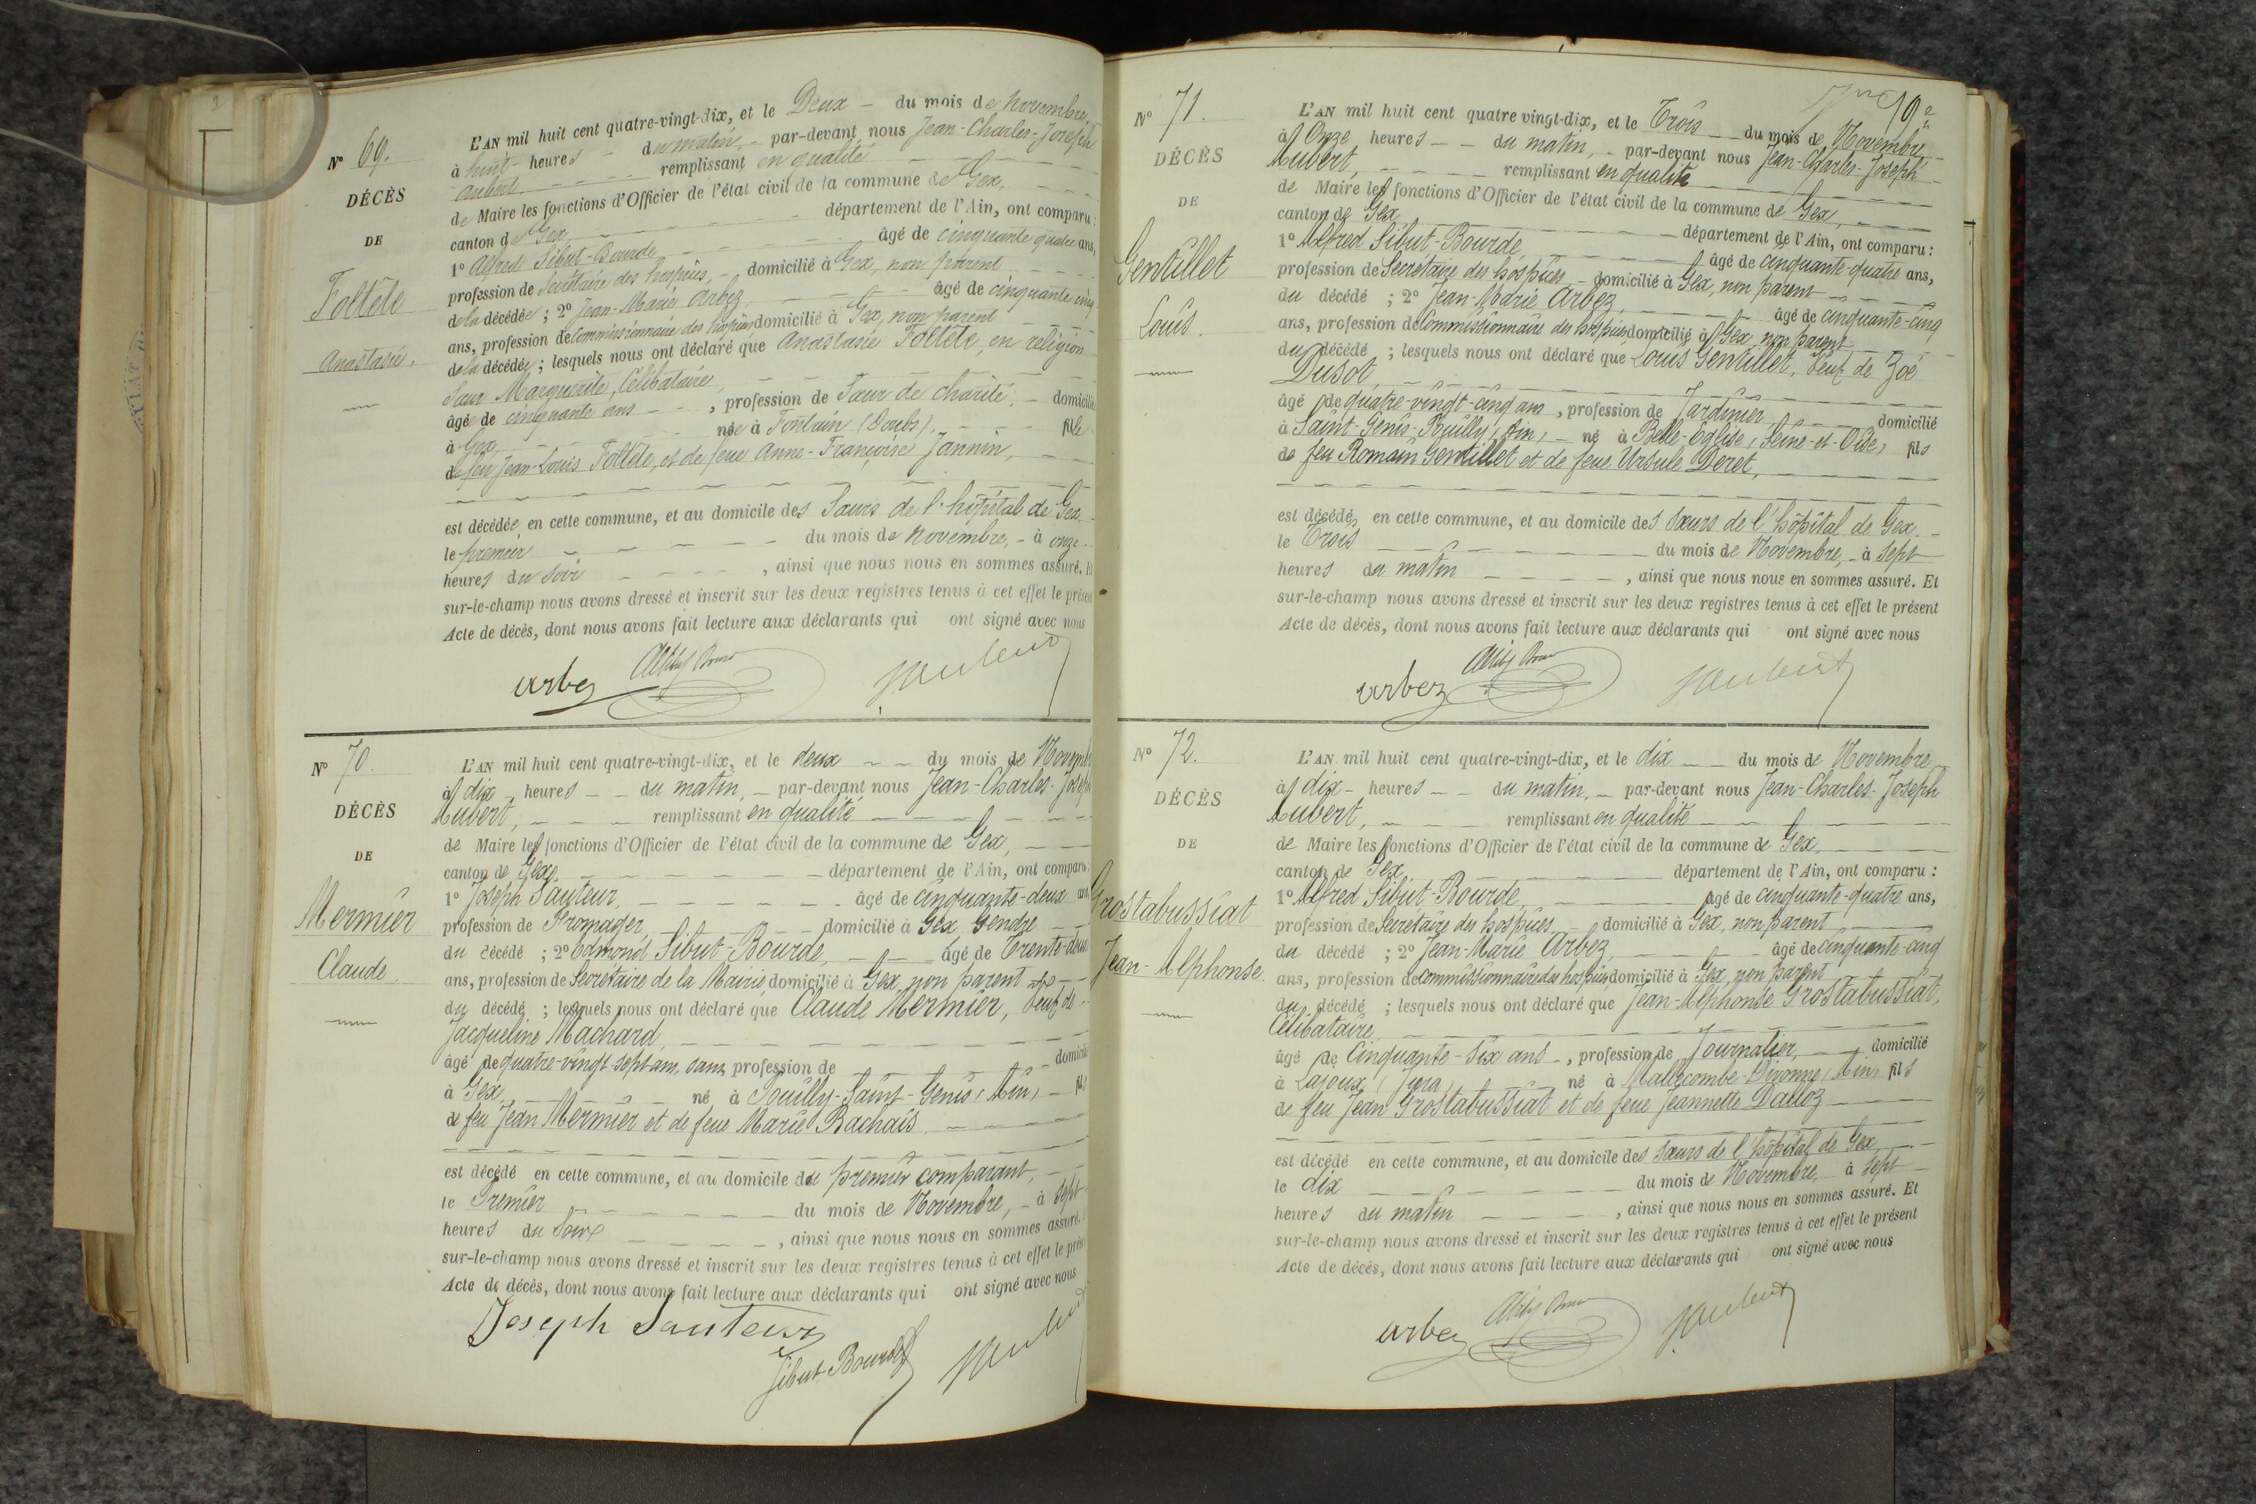 Nº 69.
DÉCÈS
DE
Foltête
Anastasie.
L'AN mil huit cent quatre-vingt-dix, et le Deux — du mois de novembre,
à huit heures du matin, par-devant nous Jean-Charles-Joseph
Aubert, remplissant en qualité
de Maire les fonctions d'Officier de l'état civil de la commune de Gex,
canton de Gex département de l'Ain, ont comparu :
1º Alfred Sibut-Bourde âgé de cinquante quatre ans,
profession de Secrétaire des hospices, domicilié à Gex, non parent
de la décédée ; 2º Jean-Marie Arbez, âgé de cinquante cinq
ans, profession de Commissionnaire des hospices domicilié à Gex, non parent
de la décédée ; lesquels nous ont déclaré que Anastasie Foltête, en religion
Sœur Marguerite, Célibataire,
âgée de cinquante ans, profession de Sœur de charité, domiciliée
à Gex, née à Fontain (Doubs). fille
de feu Jean-Louis Foltête, et de feue Anne-Françoise Jannin,
est décédée en cette commune, et au domicile des Sœurs de l'hôpital de Gex
le premier du mois de novembre, à onze
heures du soir, ainsi que nous nous en sommes assuré. Et
sur-le-champ nous avons dressé et inscrit sur les deux registres tenus à cet effet le présent
Acte de décès, dont nous avons fait lecture aux déclarants qui ont signé avec nous
arbez
JAubert
Nº 70.
DÉCÈS
DE
Mermier
Claude.
L'AN mil huit cent quatre-vingt-dix, et le deux du mois de Novembre
à dix heures du matin, par-devant nous Jean-Charles-Joseph
Aubert, remplissant en qualité
de Maire les fonctions d'Officier de l'état civil de la commune de Gex,
canton de Gex, département de l'Ain, ont comparu :
1º Joseph Sauteur, âgé de cinquante-deux ans,
profession de Fromager, domicilié à Gex Gendre
du décédé ; 2º Edmond Sibut-Bourde, âgé de Trente-deux
ans, profession de Secrétaire de la Mairie, domicilié à Gex, non parent
du décédé ; lesquels nous ont déclaré que Claude Mermier, Veuf de
Jacqueline Machard,
âgé de quatre-vingt-sept ans, sans profession de domicilié
à Gex, né à Pouilly-Saint-Genis (Ain) fils
de feu Jean Mermier et de feue Marie Rachais
est décédé en cette commune, et au domicile du premier comparant,
le Premier du mois de Novembre, à sept
heures du soir, ainsi que nous nous en sommes assuré.
sur-le-champ nous avons dressé et inscrit sur les deux registres tenus à cet effet le présent
Acte de décès, dont nous avons fait lecture aux déclarants qui ont signé avec nous
Joseph Sauteur
Sibut-Bourde
JAubert
Nº 71.
DÉCÈS
DE
Gentillet
Louis.
L'AN mil huit cent quatre-vingt-dix, et le Trois du mois de Novembre
à Onze heures du matin, par-devant nous Jean-Charles-Joseph
Aubert, remplissant en qualité
de Maire les fonctions d'Officier de l'état civil de la commune de Gex,
canton de Gex département de l'Ain, ont comparu :
1º Alfred Sibut-Bourde, âgé de cinquante-quatre ans,
profession de Secrétaire des hospices domicilié à Gex, non parent
du décédé ; 2º Jean-Marie Arbez, âgé de cinquante-cinq
ans, profession de Commissionnaire des hospices, domicilié à Gex, non parent
du décédé ; lesquels nous ont déclaré que Louis Gentillet, Veuf de Zoé
Dusot,
âgé de quatre-vingt-cinq ans, profession de Jardinier, domicilié
à Saint-Genis-Pouilly (Ain), né à Belle-Eglise (Seine-et-Oise) fils
de feu Romain Gentillet et de feue Ursule Deret,
est décédé en cette commune, et au domicile des sœurs de l'hôpital de Gex
le Trois du mois de Novembre, à sept
heures du matin, ainsi que nous nous en sommes assuré. Et
sur-le-champ nous avons dressé et inscrit sur les deux registres tenus à cet effet le présent
Acte de décès, dont nous avons fait lecture aux déclarants qui ont signé avec nous
arbez
JAubert
Nº 72.
DÉCÈS
DE
Grostabussiat
Jean-Alphonse.
L'AN mil huit cent quatre-vingt-dix, et le dix du mois de Novembre
à dix heures du matin, par-devant nous Jean-Charles-Joseph
Aubert, remplissant en qualité
de Maire les fonctions d'Officier de l'état civil de la commune de Gex,
canton de Gex département de l'Ain, ont comparu :
1º Alfred Sibut-Bourde, âgé de cinquante-quatre ans,
profession de Secrétaire des hospices domicilié à Gex, non parent
du décédé ; 2º Jean-Marie Arbez, âgé de cinquante-cinq
ans, profession de commissionnaire des hospices, domicilié à Gex, non parent
du décédé ; lesquels nous ont déclaré que Jean-Alphonse Grostabussiat,
Célibataire
âgé de Cinquante-six ans, profession de Journalier, domicilié
à Lajoux (Jura) né à Divonne (Ain) fils
de feu Jean Grostabussiat et de feue Jeannette Dalloz
est décédé en cette commune, et au domicile des sœurs de l'hôpital de Gex
le dix du mois de Novembre, à sept
heures du matin, ainsi que nous nous en sommes assuré. Et
sur-le-champ nous avons dressé et inscrit sur les deux registres tenus à cet effet le présent
Acte de décès, dont nous avons fait lecture aux déclarants qui ont signé avec nous
arbez
JAubert